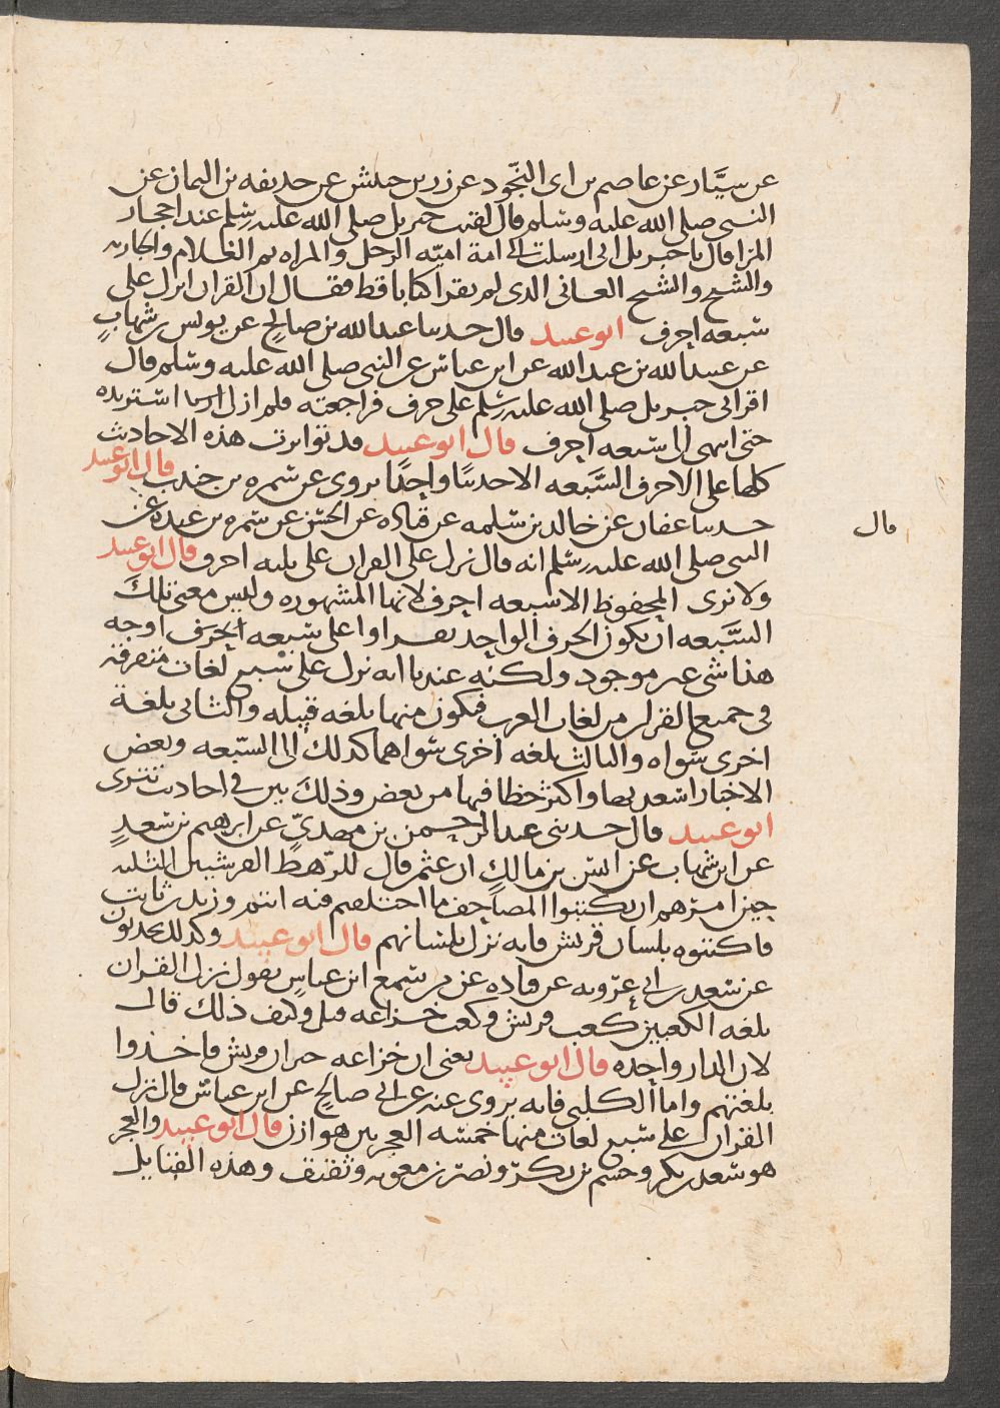 عن سيَّار عن عاصم بن ابى النَّجُود عن زر بن حبيش عن حذيفه بن اليمان عن
النبى صلى الله عليه وسلم قال لقيت جبريل صلى الله عليه وسلم عند احجار
المرا قال يا جبريل انى ارسلت الى امة اميّه الرجل والمراه ثم الغلام والجاريه
والشيخ والشيخ العانى الذى لم يقرا كتابا قط فقال ان القران انزل على
سبعه احرف ابو عبيد قال حدثنا عبد الله بن صالح عن يونس بن شهابٍ
عن عبيد الله بن عبد الله عن ابن عباس عن النبى صلى الله عليه وسلم قال
اقرانى جبريل صلى الله عليه وسلم على حرف فراجعته فلم ازل استزيده
حتى انتهى الى سبعه احرف قال ابو عبيد قد تواترت هذه الاحاديث
كلها على الاحرف السَّبعه الا حديثا واحدًا يروى عن سمره بن جندب قال ابو عبيد
قال
حدثنا عفان عن خالد بن سلمه عن قتاده عن الحسن عن سمره بن عبده عن
النبى صلى الله عليه وسلم انه قال نزل على القران على ثلثه احرف قال ابو عبيد
ولا نرى المحفوظ الا سبعه احرف لانها المشهوره وليس معنى تلك
السَّبعه ان يكون الحرف الواحد يقرا وا على سبعه احرف اوجه
هذا شى غير موجود ولكنه عندنا انه نزل على سبع لغات متفرقة
فى جميع القران من لغات العرب فيكون منها بلغه قبيله والثانى بلغة
اخرى سواه والثالث بلغه اخرى سواهما كذلك الى السّبعه وبعض
الاخبار اسعد بها واكثر حظا فيها من بعض وذلك بين فى احاديث تترى
ابو عبيد قال حدثنى عبد الرحمن بن مهدىّ عن ابرهيم بن سعدٍ
عن ابن شهاب عن انس بن مالكٍ ان عثمن قال للرّهط القرشيين الثلثه
حين امرهم ان يكتبوا المصاحف ما اختلفتم فيه انتم وزيد بن ثابت
فاكتبوه بلسان قريش فانه نزل بلسانهم قال ابو عبيد وكذلك يحدثون
عن سعد بن ابى عرُوبه عن قتاده عن من سمع ابن عباسٍ يقول نزل القران
بلغه الكعبين كعب قريش وكعب خزاعه قيل وكيف ذلك قال
لان الدار واحده قال ابو عبيد يعنى ان خزاعه جيران قريش فاخذوا
بلغتهم واما الكلبى فانه يروى عنه عن ابى صالح عن ابن عباس قال نزل
القران على سبع لغات منها خمسه العجز من هوازن قال ابو عبيد والعجز
هو سعد بن بكر وجشم بن بكرٍ ونصر بن معويه وثقيف وهذه القبايل